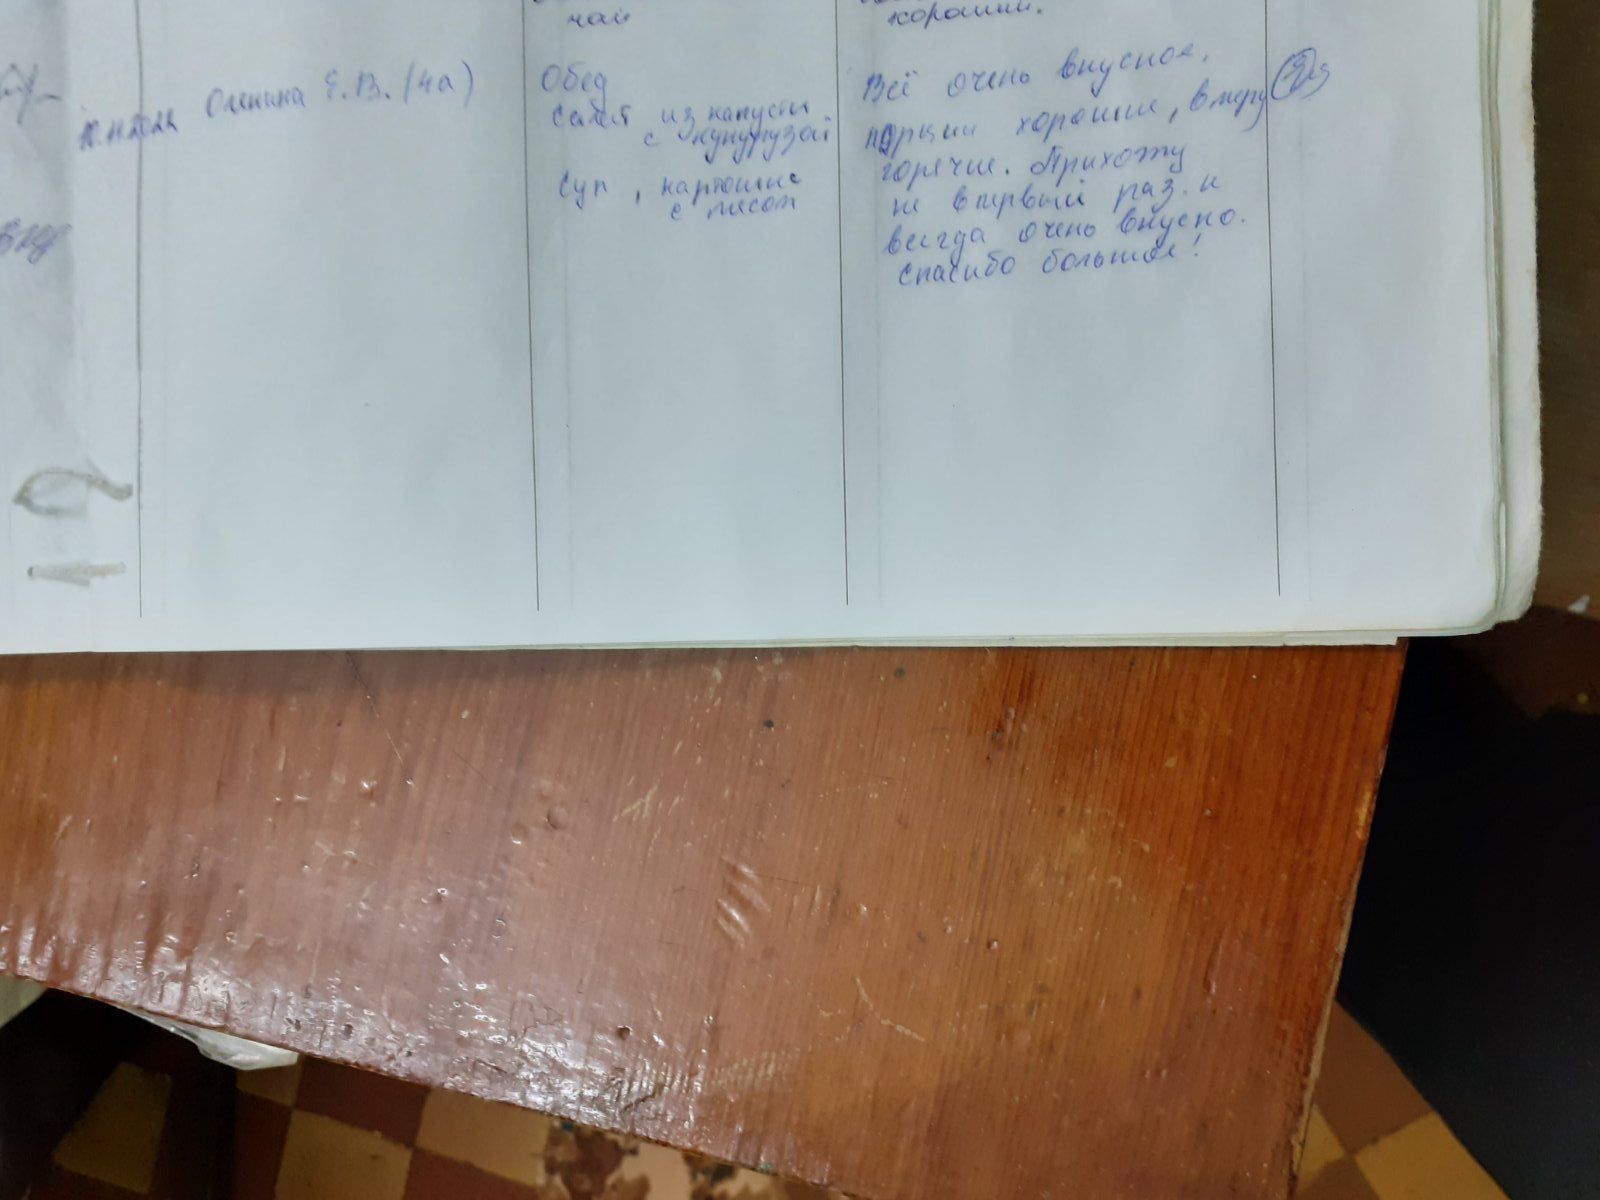 чай
хороший.
Оленина Е.В. (4а)
Обед
Салат из капусты
с кукурузой
Суп, картошка
с мясом
Всё очень вкусное,
порции хорошие, в меру
горячие. Прихожу
не впервый раз. и
всегда очень вкусно.
Спасибо большое!